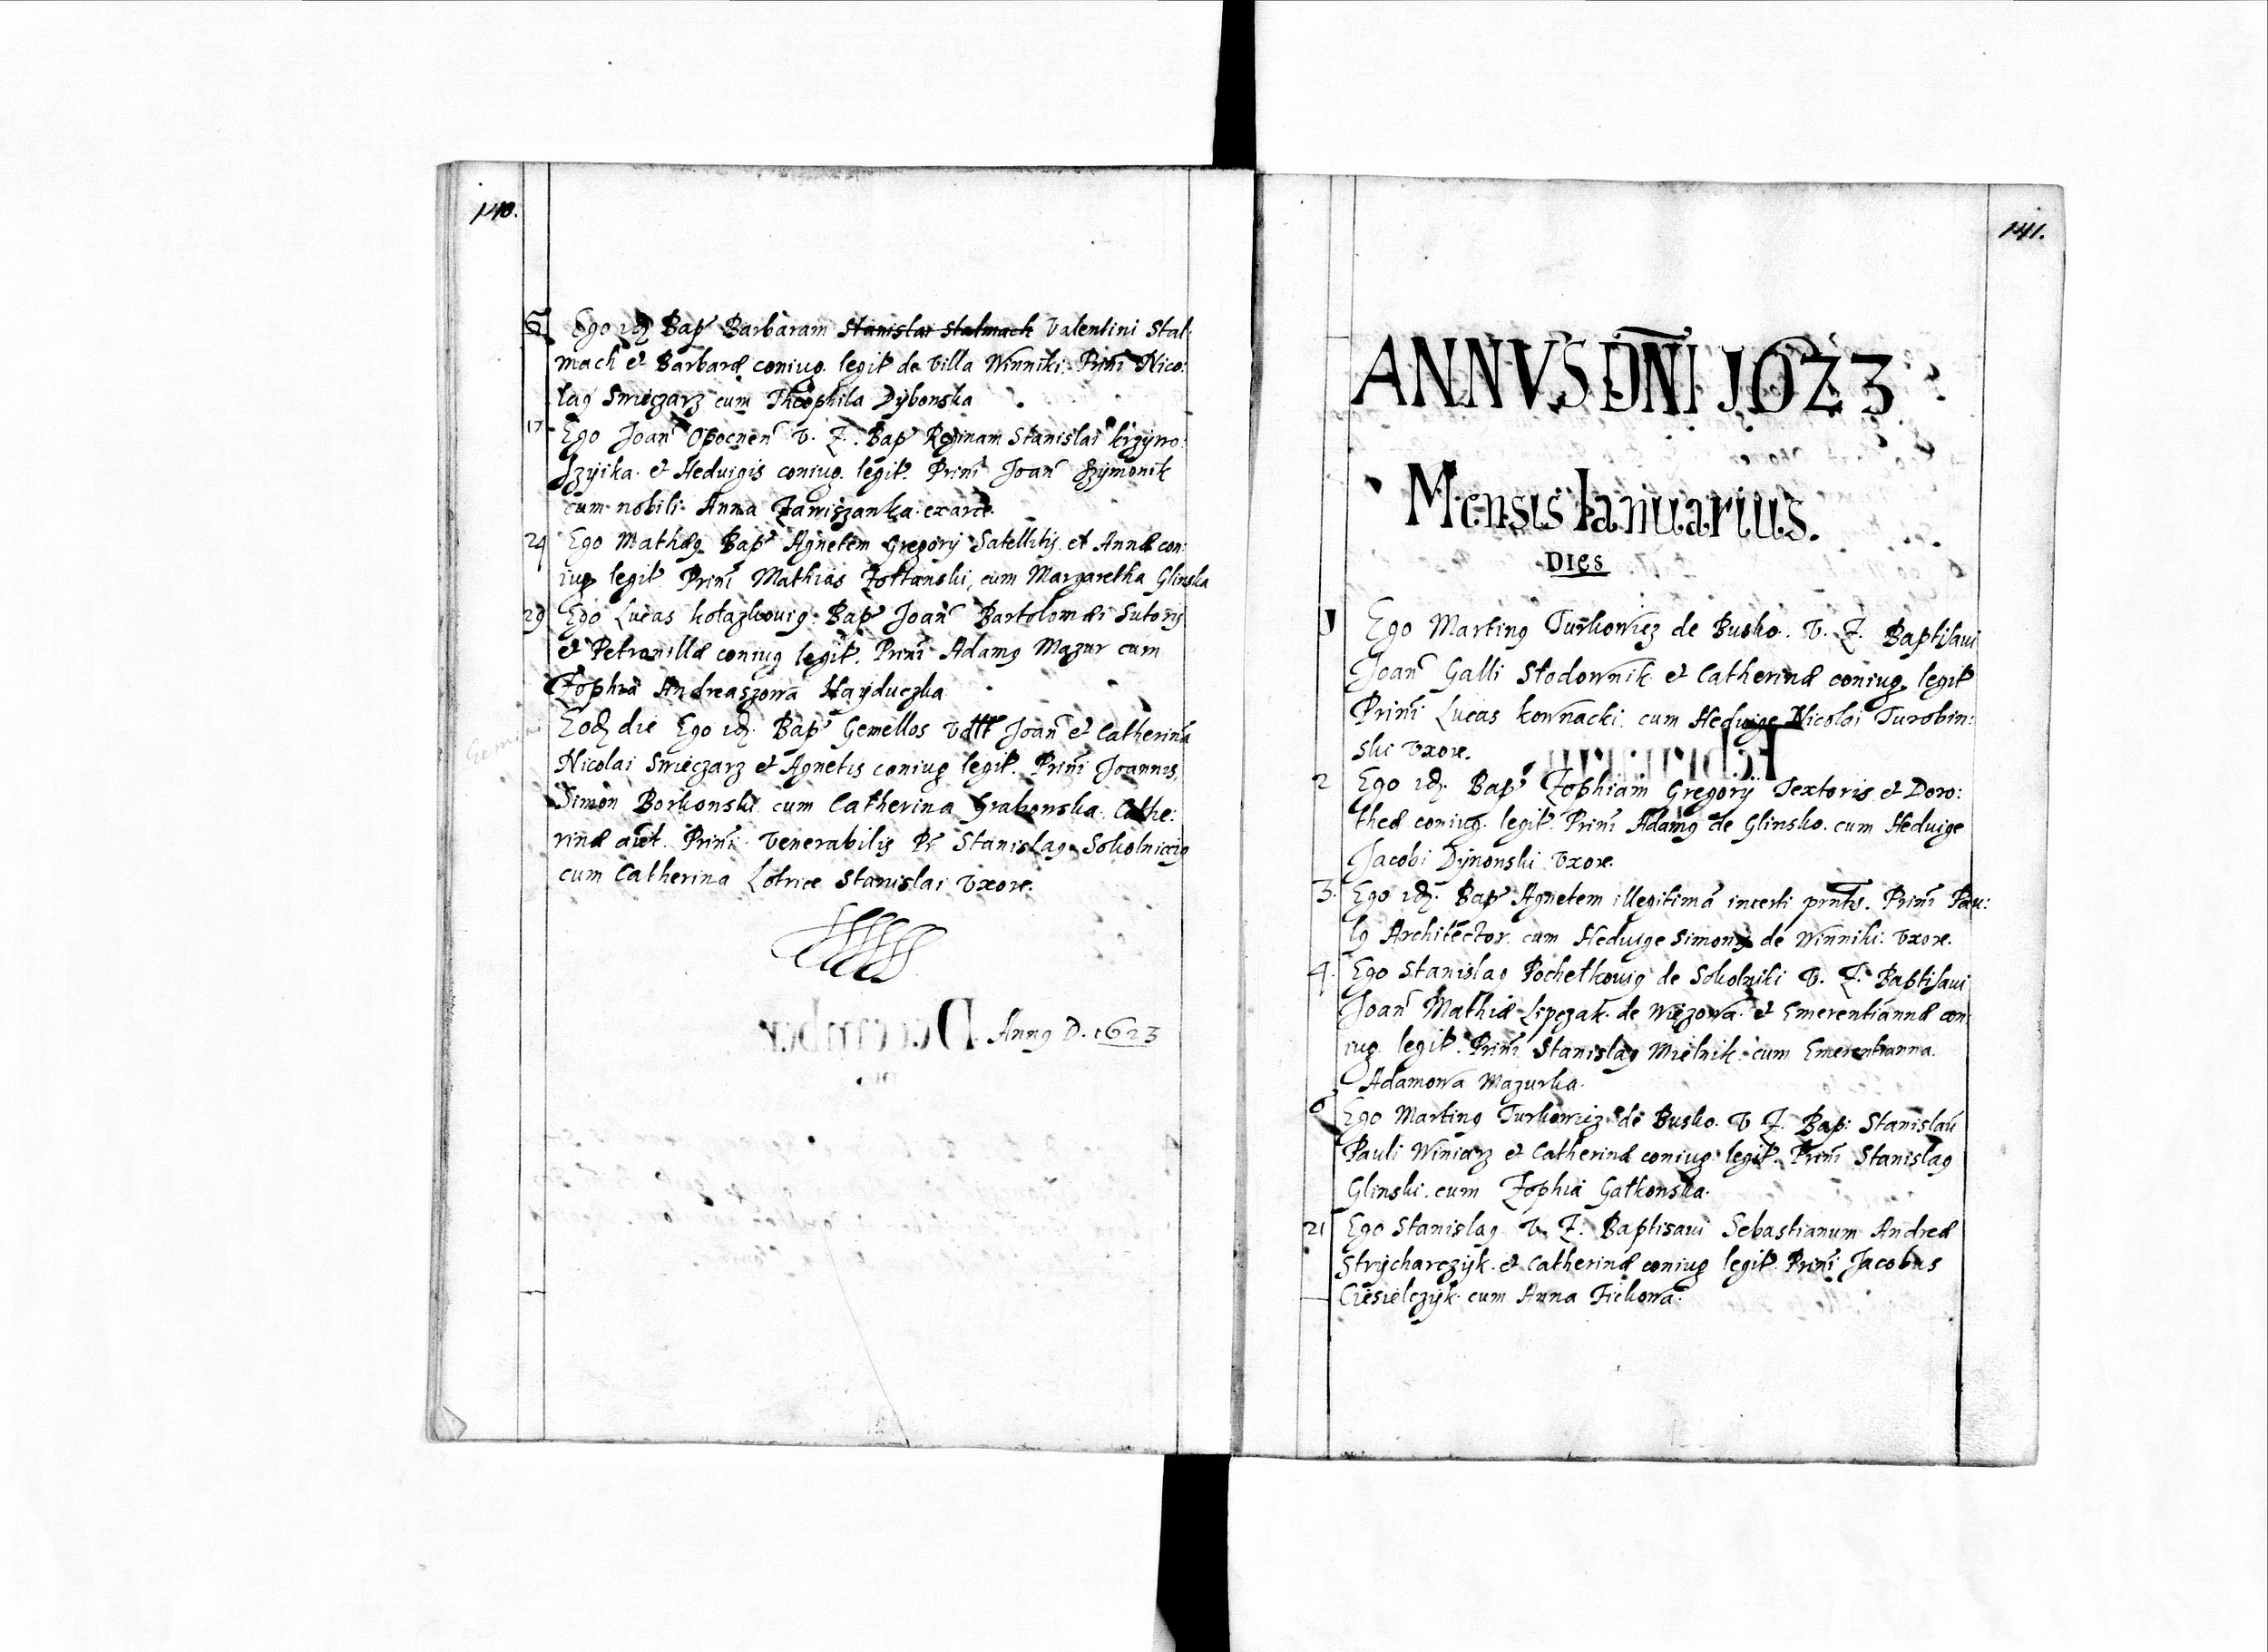 140.
Ego idē Bap Barbaram Stanislai Stalmach Valentini Stal:
mach et Barbaræ coniug. legit de Villa Winniki. Prini Nico:
lag Swieczarz cum Theophila Dybonska
17 Ego Joan Opocnen V. Z. Bap Reginam Stanislai krzywo:
szyika et Heduigis coniug. legit. Prini Joan Szymonik
cum nobili Anna Zawiszanka ex arce.
24 Ego Mathæg Bap Agnetem Gregorij Satellitis et Annæ con:
iug legit Prini Mathias Zołtanski, cum Margaretha Glinska
29 Ego Lucas kołazkouig Bap Joan Bartolomæi Sutoris
et Petronillæ coniug legit. Prini Adamg Mazur cum
Zophia Andreaszowa Hayduczka
Gemini
Eodē die Ego idē Bap Gemellos Joan et Catherina
Nicolai Swieczarz et Agnetis coniug legit. Prini Joannis,
Simon Borkonski cum Catherina Grabonska. Cathe:
rinæ aūt. Prini Venerabilis Pr Stanislag Sokolnicig
cum Catherina Lotrice Stanislai Vxore.
Anng D. 1623
141.
ANNVS DNI 1623
Mensis Ianuarius.
DIes
1 Ego Marting Turkowicz de Busko. V. Z. Baptisaui
Joan Galli Stodownik et Catherinæ coniug. legit
Prini Lucas kownacki cum Heduige Nicolai Turobin:
ski Vxore.
2 Ego idē Bap Zophiam Gregorij Textoris et Doro:
theæ coniug. legit. Prini Adamg de Glinsko. cum Heduige
Jacobi Dynonski Vxore.
3. Ego idē Bap Agnetem illegitimā incerti prntis. Prini Pau:
lg Architector. cum Heduige Simonis de Winniki Vxore.
4. Ego Stanislag Pochetkouig de Sokolniki V. Z. Baptisaui
Joan Mathiæ Lipczak de Wiezowa et Emerentiannæ con:
iug. legit. Prini Stanislag Mielnik cum Emerentianna.
Adamowa Mazurka.
6 Ego Marting Turkowicz de Busko. V Z. Bap: Stanislaū
Pauli Winiarz et Catherinæ coniug legit. Prini Stanislag
Glinski. cum Zophia Gałkonska.
21 Ego Stanislag V. Z. Baptisaui Sebastianum Andreæ
Strycharczyk. et Catherinæ coniug legit. Prini Jacobus
Ciesielczyk cum Anna Fickowa.